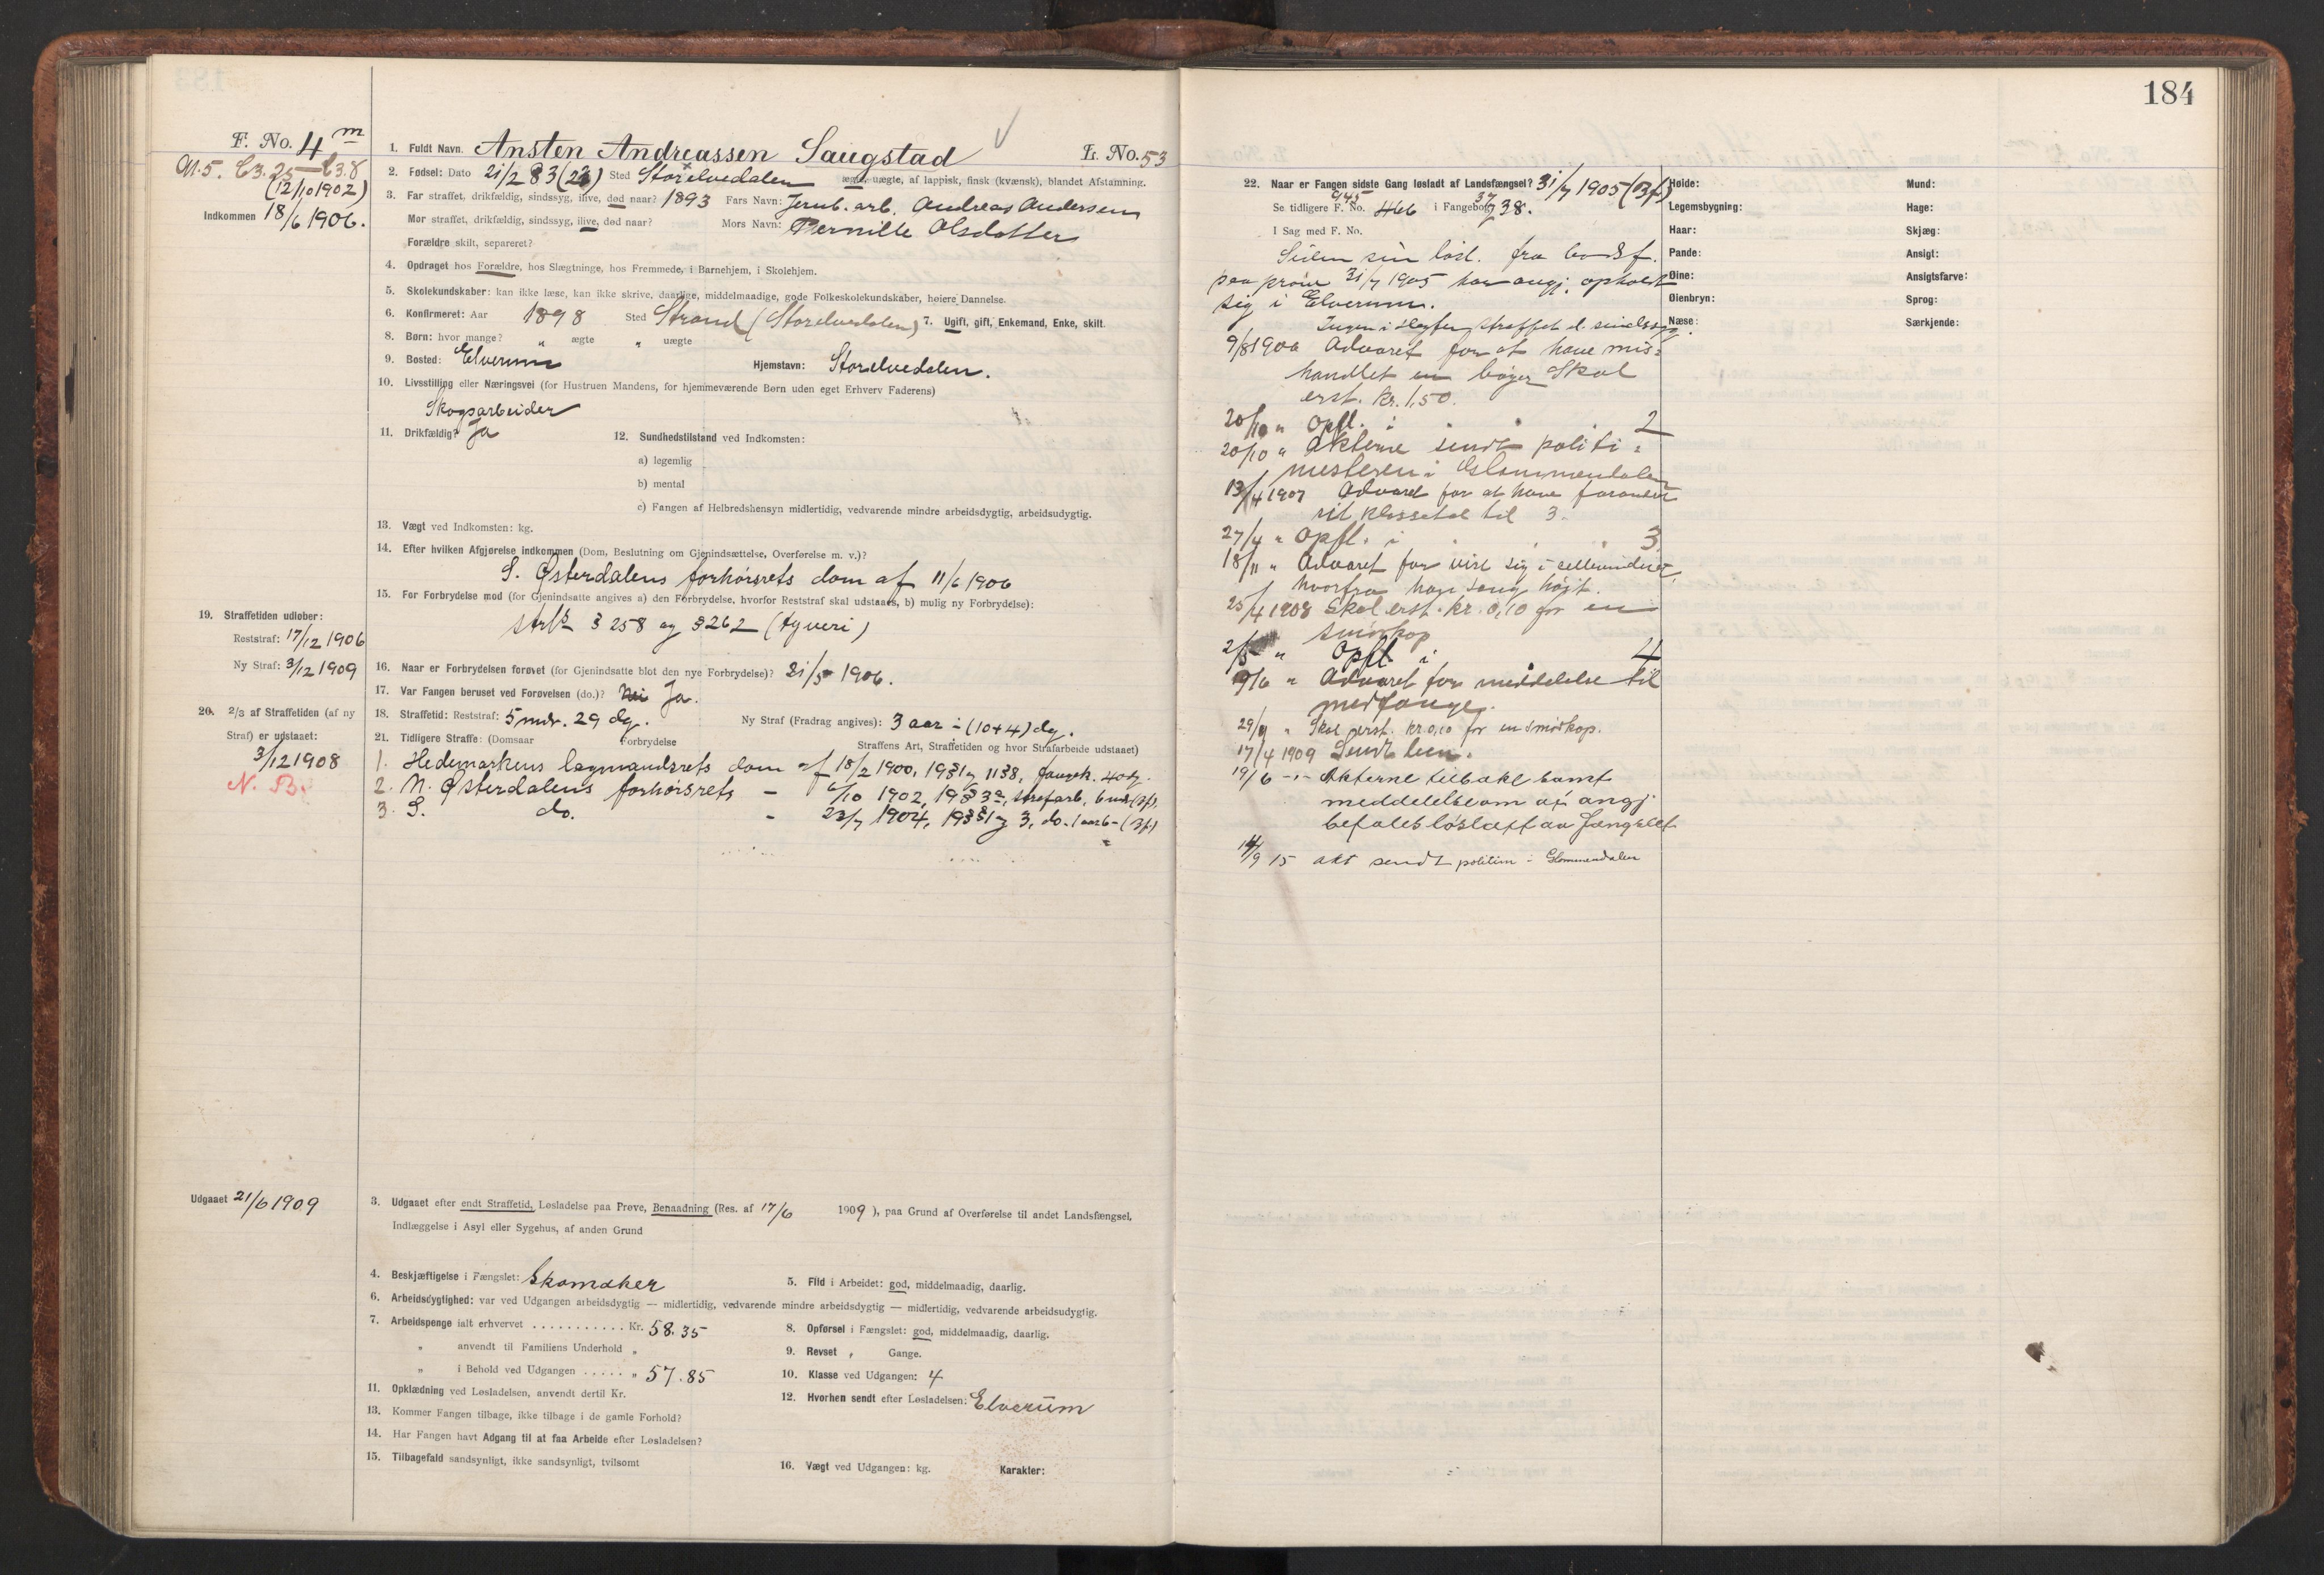 F. No. 4 m
(12/10 1902)
Indkommen 18/6 1906.
1. Fuldt Navn. Ansten Andreassen Saugstad L. No. 53
2. Fødsel: Dato 21/2 83 (23) Sted Storelvedalen ægte, uægte, af lappisk, finsk (kvænsk), blandet Afstamning.
3. Far straffet, drikfældig, sindssyg, ilive, død naar? 1893 Fars Navn: Jernb. arb. Andreas Andersen
Mor straffet, drikfældig, sindssyg, ilive, død naar? Mors Navn: Pernille Olsdatter
Forældre skilt, separeret?
4. Opdraget hos Forældre, hos Slægtninge, hos Fremmede, i Barnehjem, i Skolehjem.
5. Skolekundskaber: kan ikke læse, kan ikke skrive, daarlige, middelmaadige, gode Folkeskolekundskaber, høiere Dannelse.
6. Konfirmeret: Aar 1898 Sted Strand (Storelvedalen) 7. Ugift, gift, Enkemand, Enke, skilt.
8. Børn: hvor mange? " ægte " uægte
9. Bosted: Elverum Hjemstavn: Storelvedalen.
10. Livsstilling eller Næringsvei (for Hustruen Mandens, for hjemmeværende Børn uden eget Erhverv Faderens)
Skogsarbeider
11. Drikfældig? Ja 12. Sundhedstilstand ved Indkomsten:
a) legemlig
b) mental
c) Fangen af Helbredshensyn midlertidig, vedvarende mindre arbeidsdygtig, arbeidsudygtig.
13. Vægt ved Indkomsten: kg.
14. Efter hvilken Afgjørelse indkommen (Dom, Beslutning om Gjenindsættelse, Overførelse m. v.)?
S. Østerdalens forhørsrets dom af 11/6 1906
15. For Forbrydelse mod (for Gjenindsatte angives a) den Forbrydelse, hvorfor Reststraf skal udstaaes, b) mulig ny Forbrydelse):
§ 258 og § 262 (tyveri)
19. Straffetiden udløber:
Reststraf: 17/12 1906
Ny Straf: 3/12 1909
16. Naar er Forbrydelsen forøvet (for Gjenindsatte blot den nye Forbrydelse)? 21/5 1906.
17. Var Fangen beruset ved Forøvelsen (do.)? Nei Ja.
18. Straffetid: Reststraf: 5 mdr. 29 dg. Ny Straf (Fradrag angives): 3 aar ÷ (10+4) dg.
20. 2/3 af Straffetiden (af ny
Straf) er udstaaet:
3/12 1908
N. B.
21. Tidligere Straffe: (Domsaar Forbrydelse Straffens Art, Straffetiden og hvor Strafarbeide udstaaet)
1. Hedemarkens lagmandsrets dom af 18/2 1900, 19 § 1 og 11 § 8, fængsl. 40 dg.
2. N. Østerdalens forhørsrets - 6/10 1902, 19 § 3a, strafarb. 6 mdr (Bf).
3. S. do. - 23/7 1904, 19 §§ 1 og 3, do. 1 aar 6 - (Bf)
Udgaaet 21/6 1909
3. Udgaaet efter endt Straffetid, Løsladelse paa Prøve, Benaadning (Res. af 17/6 1909), paa Grund af Overførelse til andet Landsfængsel,
Indlæggelse i Asyl eller Sygehus, af anden Grund
4. Beskjæftigelse i Fængslet: Skomaker 5. Flid i Arbeidet: god, middelmaadig, daarlig.
6. Arbeidsdygtighed: var ved Udgangen arbeidsdygtig — midlertidig, vedvarende mindre arbeidsdygtig — midlertidig, vedvarende arbeidsudygtig.
7. Arbeidspenge ialt erhvervet . . . . . . . . . . . Kr. 58.35 8. Opførsel i Fængslet: god, middelmaadig, daarlig.
" anvendt til Familiens Underhold " 9. Revset , Gange.
" i Behold ved Udgangen . . . . . " 57.85 10. Klasse ved Udgangen: 4
11. Opklædning ved Løsladelsen, anvendt dertil Kr. 12. Hvorhen sendt efter Løsladelsen: Elverum
13. Kommer Fangen tilbage, ikke tilbage i de gamle Forhold?
14. Har Fangen havt Adgang til at faa Arbeide efter Løsladelsen?
15. Tilbagefald sandsynligt, ikke sandsynligt, tvilsomt 16. Vægt ved Udgangen: kg. Karakter:
184
22. Naar er Fangen sidste Gang løsladt af Landsfængsel? 31/7 1905 (Bf)
Se tidligere F. No. 945 466 i Fangebog 37 og 38.
I Sag med F. No.
Siden sin løsl. fra bodsf.
paa prøve 31/7 1905 har angj. opholdt
sig i Elverum.
Ingen i slegten straffet el. sindssyg.
9/8 1906 Advaret for at have mis=
handlet en bøger Skal
erst. kr. 1,50.
20/10 " Opfl. i . . . 2
20/10 " Akterne sendt politi=
mesteren i Glommendalen
13/4 1907 Advaret for at have forandret
sit klassetal til 3.
27/4 " Opfl. i . . . 3
18/11 " Advaret for vise sig i cellevinduet,
hvorfra han sang højt.
25/4 1908 Skal erst. kr. 0,10 for en
smørkop
2/5 " Opfl. i 4
9/6 " Advaret for meddelelse til
medfange.
29/9 " Skal erst. kr 0,10 for en smørkop.
17/4 1909 Sendt
19/6 -"- Akterne tilbake samt
meddelelse om at angj.
befales løslatt av fængslet
14/9 15 akt sendt politim i Glommendalen
Høide: Mund:
Legemsbygning: Hage:
Haar: Skjæg:
Pande: Ansigt:
Øine: Ansigtsfarve:
Øienbryn: Sprog:
Næse: Særkjende: